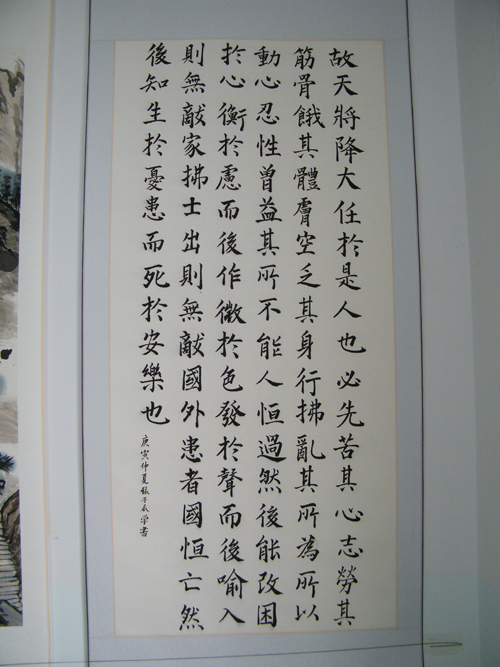 故天將降大任於是人也必先苦其心志勞其
筋骨餓其體膚空乏其身行拂亂其所為所以
動心忍性曾益其所不能人恒過然後能改困
於心衡於慮而後作徵於色發於聲而後喻入
則無敵家拂士出則無敵國外患者國恒亡然
後知生於憂患而死於安樂也
庚寅仲夏張學書